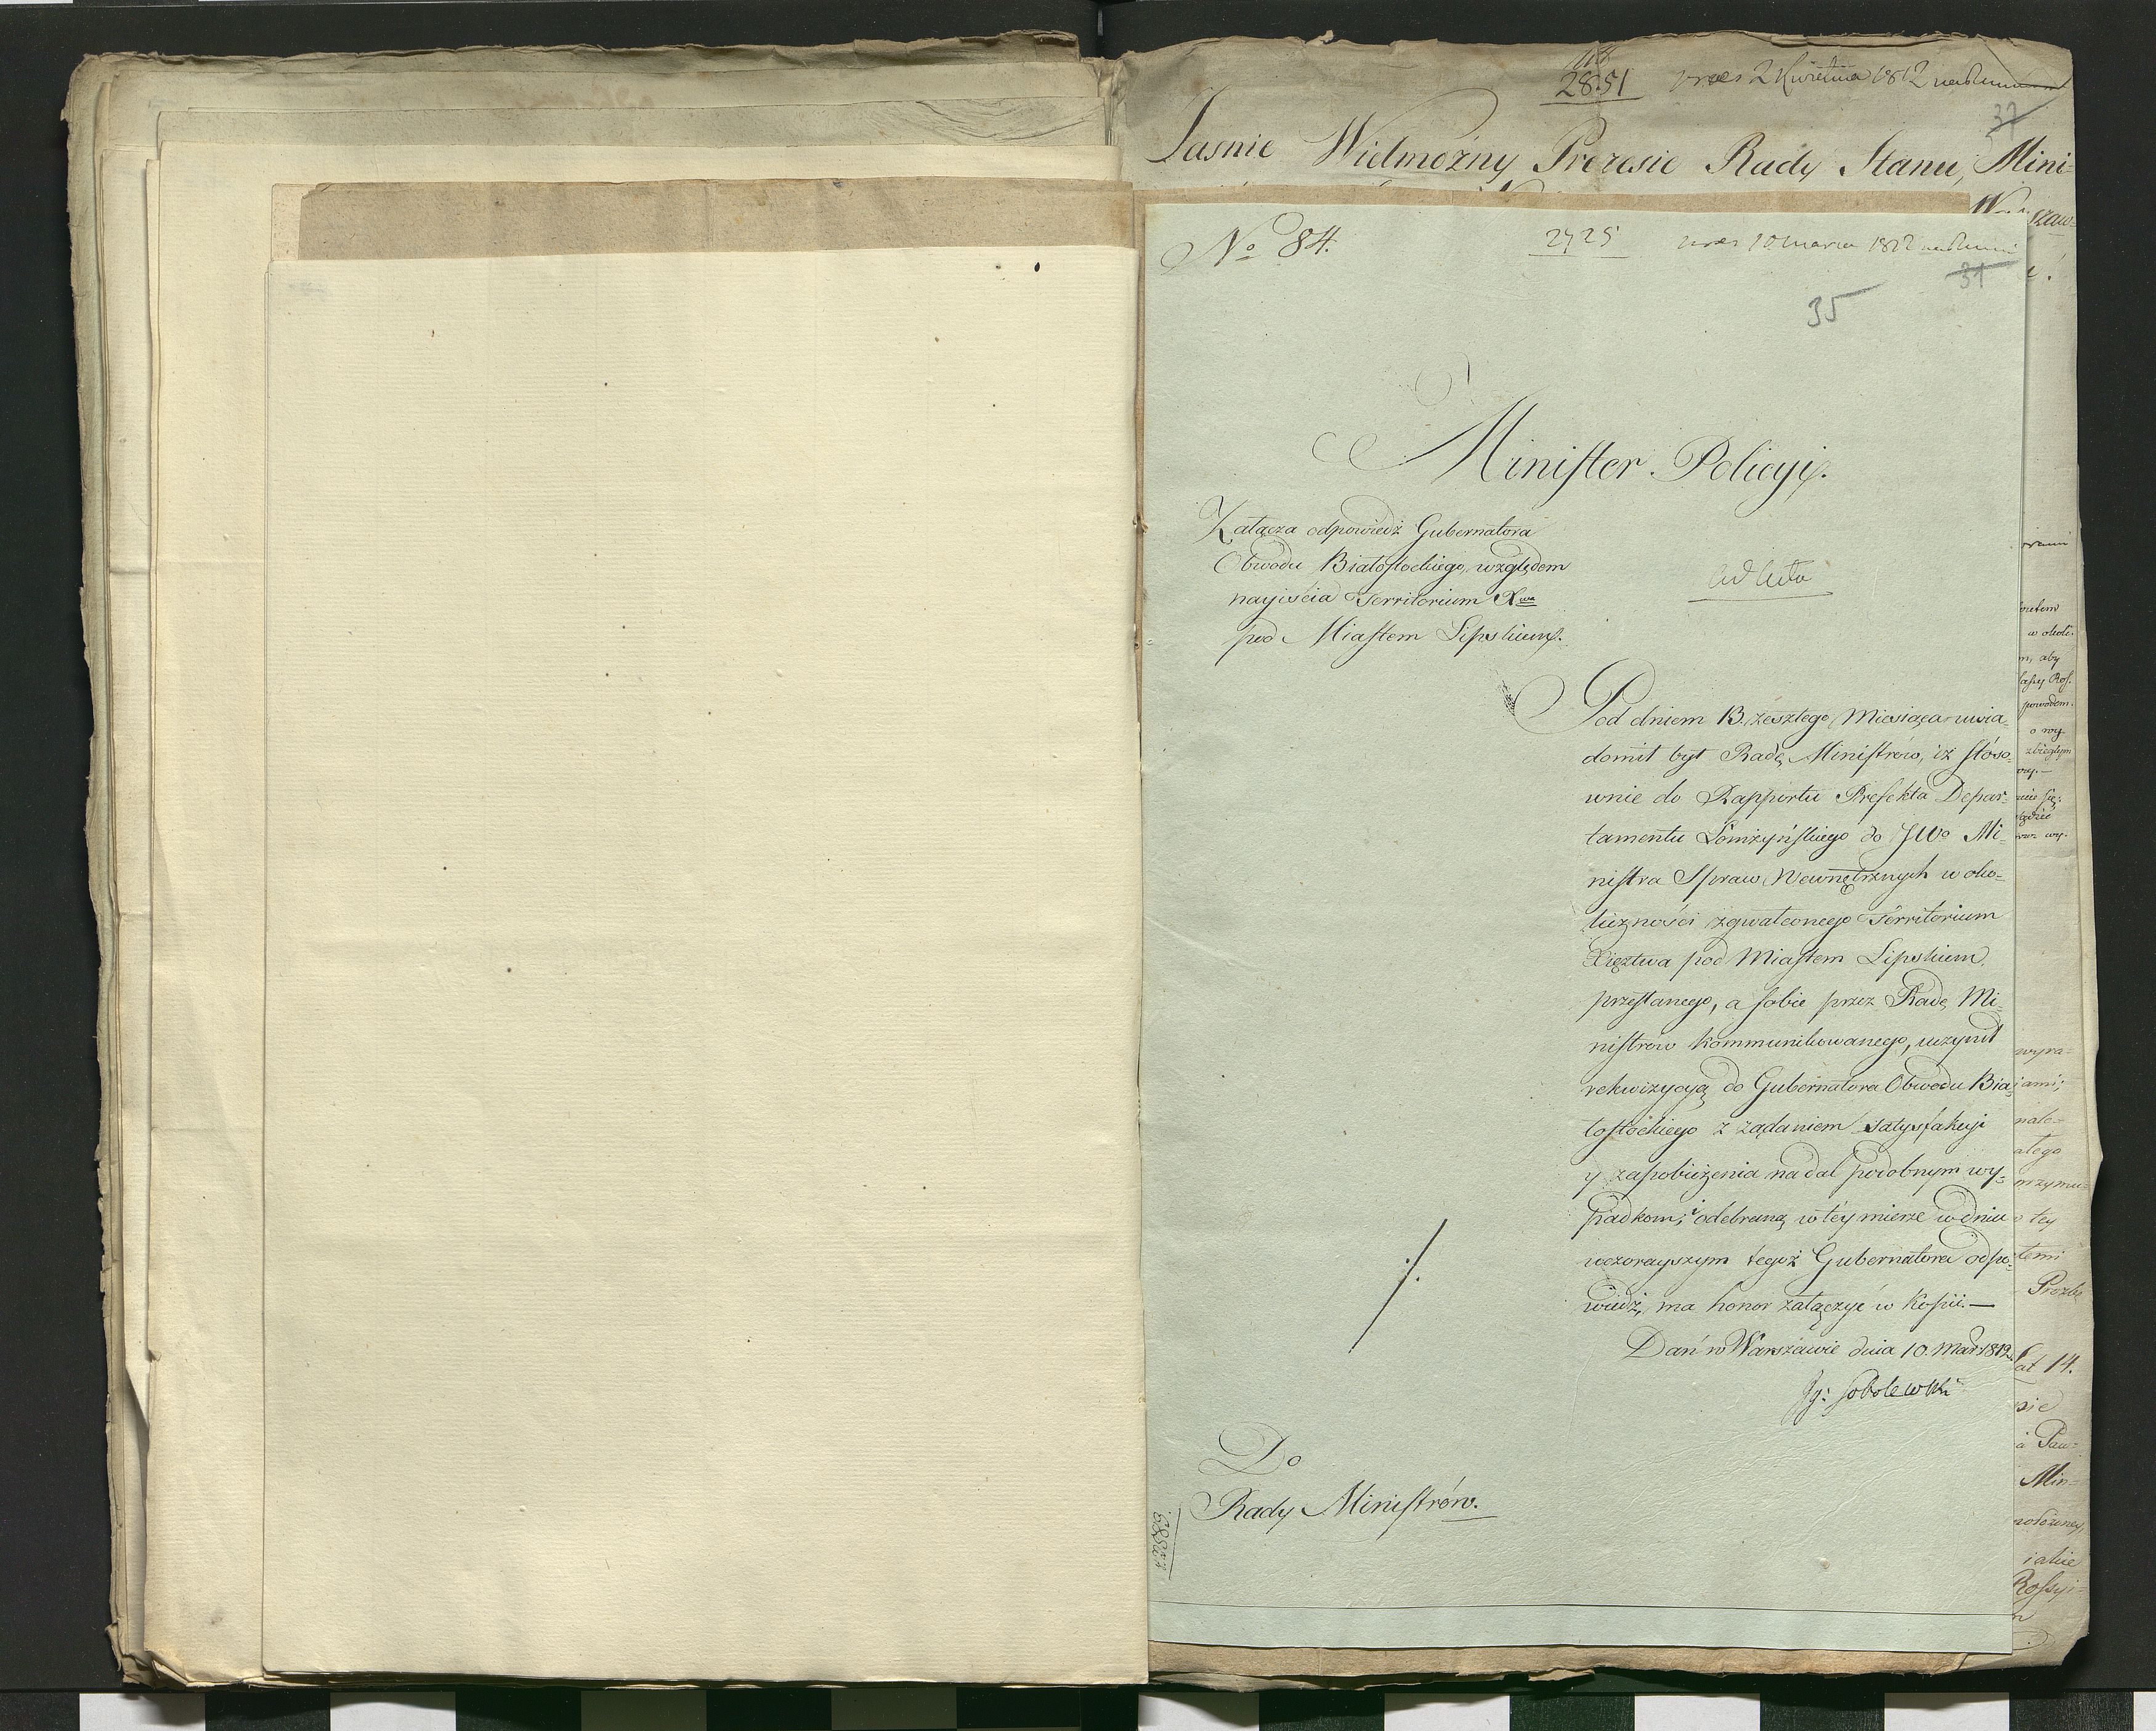 2851 2 Kwietnia 1812
37
Jasnie Wielmożny Prezesie Rady Stanu, Mini-
No 84. 2725 10 marca 1812
31
35
Minister Policyi.
Załącza odpowiedź Gubernatora
Obwodu Białostockiego, względem
nayiścia Territorium Xwa
pod Miastem Lipskiem.
ad acta
Pod dniem 13. zeszłego Miesiąca uwia-
domił był Radę Ministrów, iż stóso-
wnie do Rapportu Prefekta Depar-
tamentu Łomżyńskiego do JWo Mi-
nistra Spraw Wewnętrznych w oko-
liczności zgwałconego Territorium
Xięztwa pod Miastem Lipskiem
przesłanego, a sobie przez Radę Mi-
nistrów kommunikowanego, uczynił
rekwizycyą do Gubernatora Obwodu Bia-
łostockiego z żądaniem satysfakcyi
y zapobieżenia nadal podobnym wy-
padkom; i odebraną w téy mierze w dniu
wczorayszym tegoż Gubernatora odpo-
wiedź, ma honor załączyć w Kopii.—
Dań w Warszawie dnia 10. Mar: 1812
Ig: Sobolewski
Do
Rady Ministrów.
m, aby
powodem
o wy
zbiegłym
wyra-
iami;
nale-
ałego
przymu-
tey
temi
Prozbę
at 14.
Min-
iakie
Rossyi-